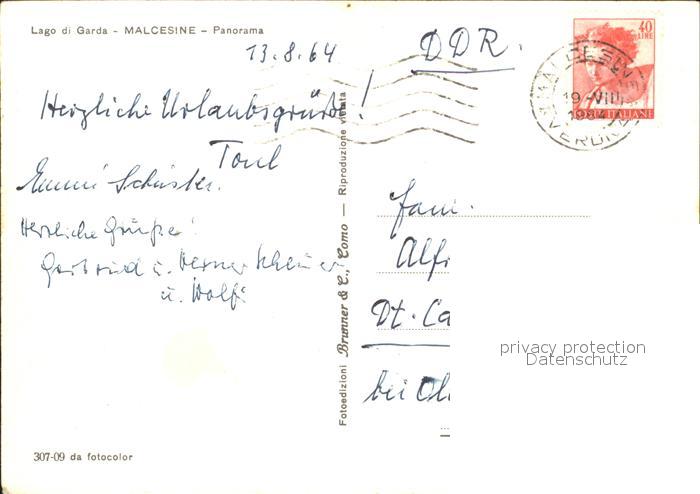 Lago di Garda - MALCESINE - Panorama
13.8.64
DDR.
40 LIRE
MALCESINE
19-VIII
VERONA
ITALIANE
Herzliche Urlaubsgrüße!
Emmi Schuster.
Herzliche Grüße!
u. Werner
u. Wolf
Fam.
Alf
Dt. Ca
bei
privacy protection
Datenschutz
Fotoedizioni Brunner & C., Como — Riproduzione vietata
307-09 da fotocolor